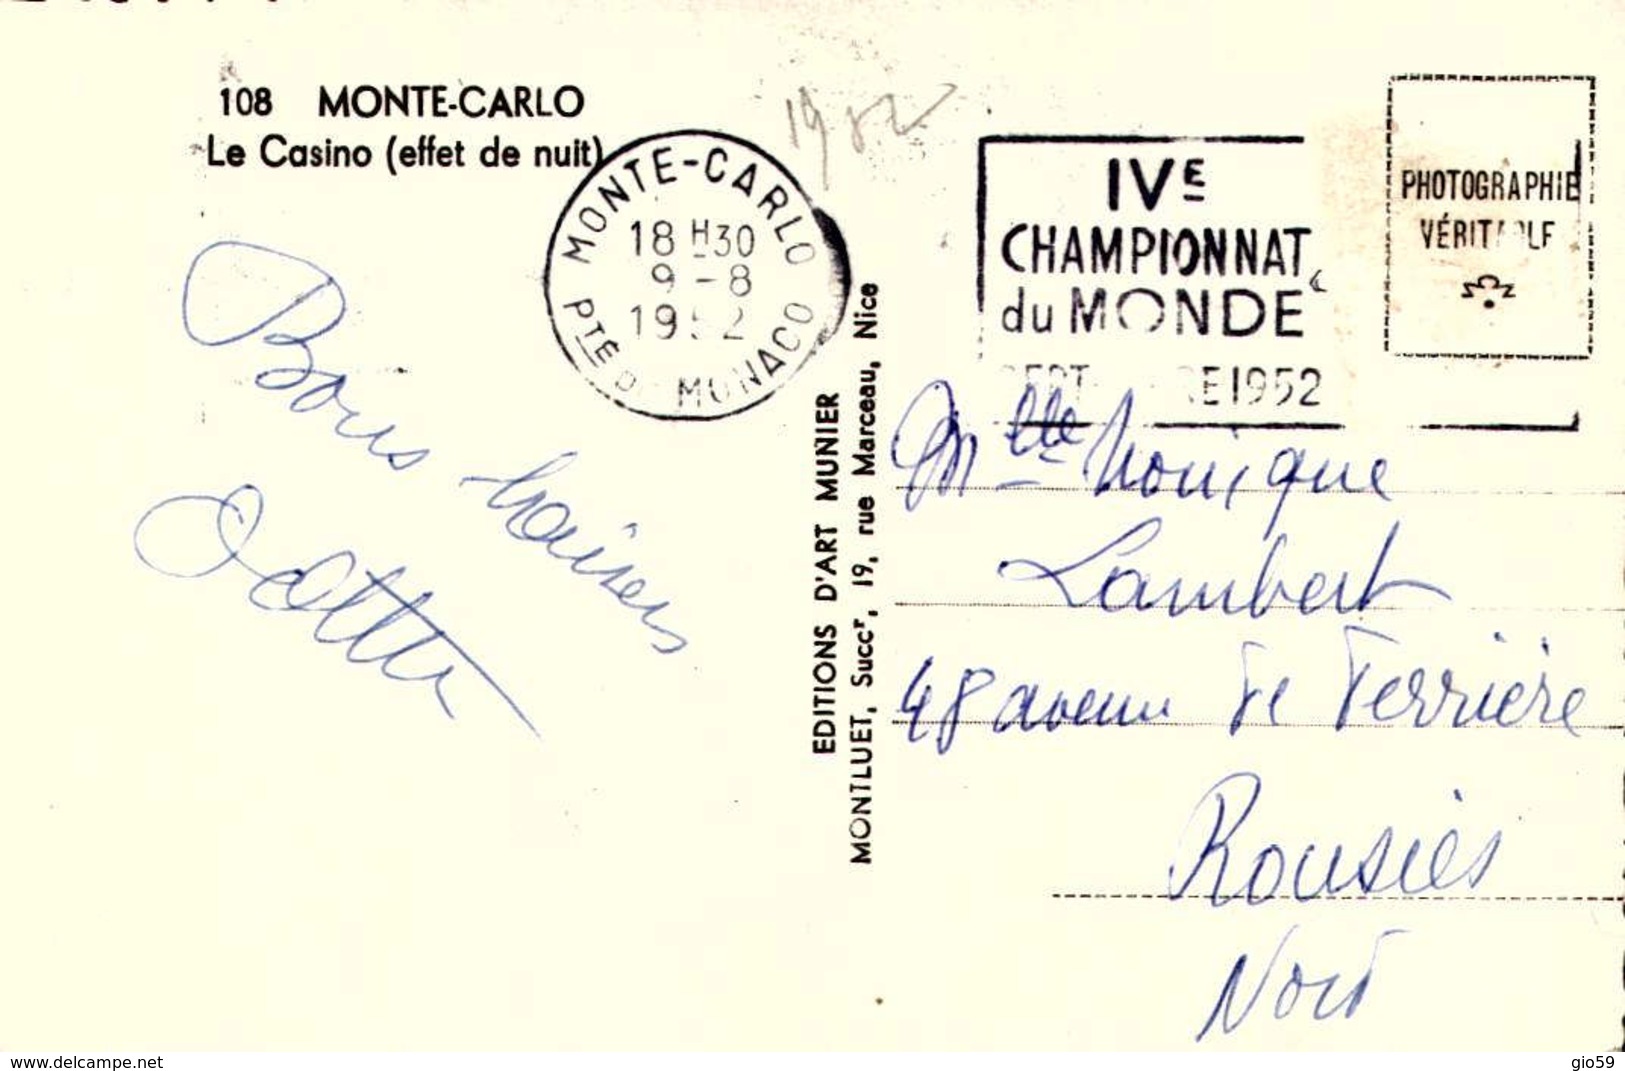 108 MONTE-CARLO
Le Casino (effet de nuit)
1952
MONTE-CARLO
18 H 30
9 - 8
1952
PTÉ D MONACO
IVE
CHAMPIONNAT
du MONDE
1952
PHOTOGRAPHIE
VÉRITABLE
Bons baisers
Odette
EDITIONS D'ART MUNIER
MONTLUET, Succr, 19, rue Marceau, Nice
Mlle Monique
Lambert
48 avenue de Ferrière
Rousies
Nord
www.delcampe.net
gio59